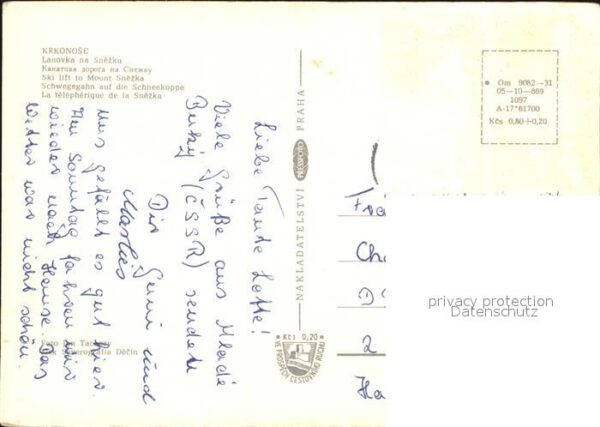 KRKONOŠE
Lanovka na Sněžku
Канатная дорога на Снежку
Ski lift to Mount Sněžka
Schwegegahn auf die Schneekoppe
La téléphérique de la Sněžka
Om 9082—31
05—10—869
1097
A-17*81700
Kčs 0,80+0,20
NAKLADATELSTVÍ PRESSFOTO PRAHA
Liebe Tante Lotte!
Viele Grüße aus Mladé
Buky (ČSSR) sendet
Dir und
Marlies
uns gefällt es gut hier.
Am Sonntag fahren wir
wieder nach Hause. Das
Wetter war nicht schön.
Ch
2
Ha
privacy protection
Datenschutz
Kčs 0,20
VE PROSPĚCH CESTOVNÍHO RUCHU
Foto Jan
Děčín